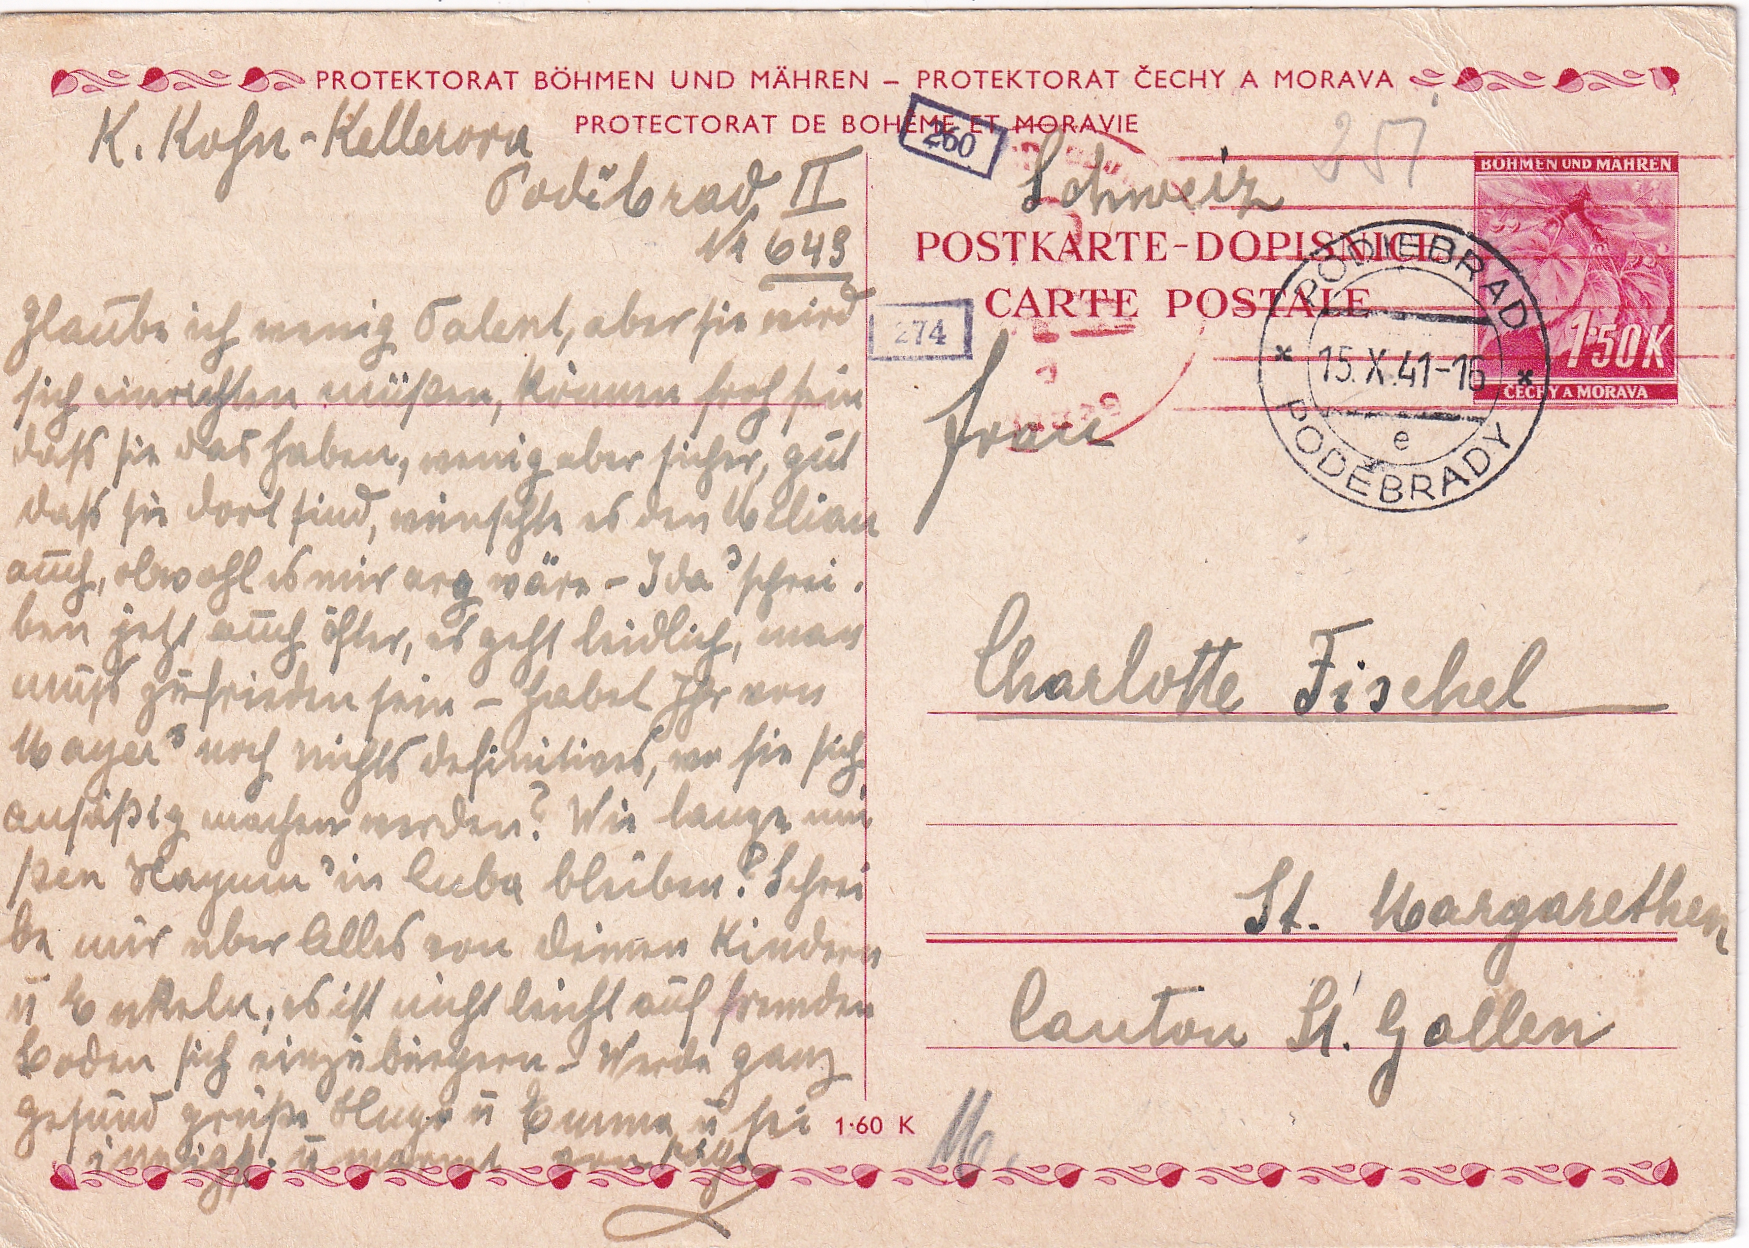 PROTEKTORAT BÖHMEN UND MÄHREN – PROTEKTORAT ČECHY A MORAVA
PROTECTORAT DE BOHÊME ET MORAVIE
K. Kohn-Kellerova
Poděbrad II
Nr 649
glaube ich wenig Talent, aber sie wird
sich einrichten müßen, können froh sein
daß sie das haben, wenig aber sicher, gut
daß sie dort sind, wünschte es den
auch, obwohl es mir arg wäre – Ida's schrei-
ben jetzt auch öfter, es geht leidlich, man
muß zufrieden sein – habet Ihr von
Mayer's noch nichts definitives, wo sie sich
ansäßig machen werden? Wie lange mü
ßen in Cuba bleiben? Schrei
be mir über Alles von Deinen Kindern
u Enkeln, es ist nicht leicht auf fremden
Boden sich einzubürgern – Werde ganz
gesund grüße Hugo u Emma u sei
innigst umarmt von
1·60 K
260
274
251
Schweiz
POSTKARTE-DOPISNICE
CARTE POSTALE
BÖHMEN UND MÄHREN
1·50K
ČECHY A MORAVA
PODIEBRAD
15.X.41-16
e
PODĚBRADY
Frau
Charlotte Fischel
St. Margarethen
Canton St. Gallen